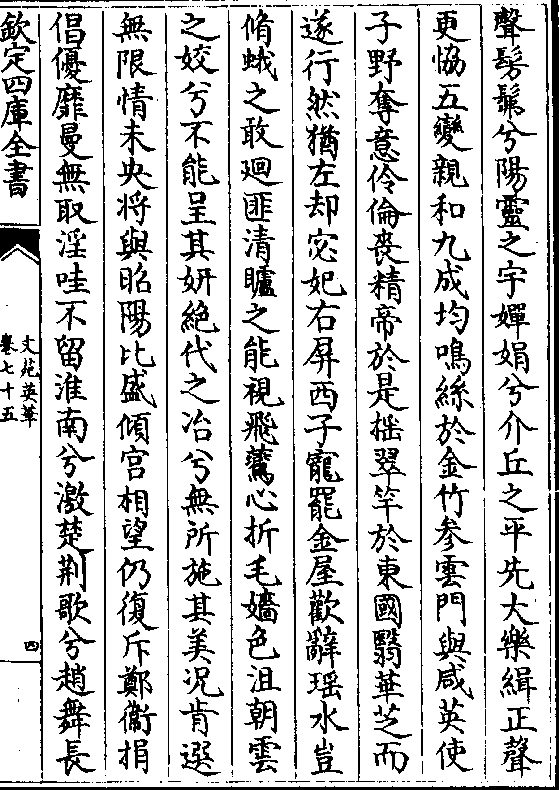 聲髣髴兮陽靈之宇嬋娟兮介丘之平先大樂緝正聲
更恊五變親和九成均鳴絲於金竹參雲門與咸英使
子野奪意伶倫喪精帝於是搖翠竿於東國翳華芝而
遂行然猶左却宓妃右屏西子寵罷金屋歡辭瑶水豈
脩蛾之敢廻匪清矑之能視飛鷰心折毛嬙色沮朝雲
之姣兮不能呈其妍絕代之冶兮無所施其美况肯選
無限情未央将與昭陽比盛傾宫相望仍復斥鄭衞捐
倡優靡曼無取淫哇不留淮南兮激楚荆歌兮趙舞長
欽定四庫全書
文苑英華
卷七十五
四